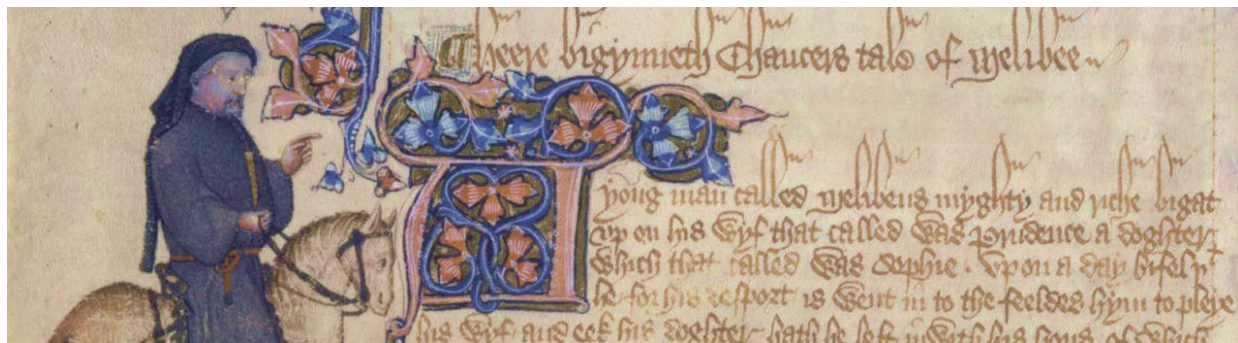 Heere bigynneth Chaucers tale of Melibee
A
yong man called Melibeus myghty and riche bigat
vp on his wyf that called was Prudence a doghter
which that called was Sophie . vpon a day bifel þt
he for his desport is went in to the feeldes hym to pleye
his wyf and eek his doghter hath he left inwith his hous of which